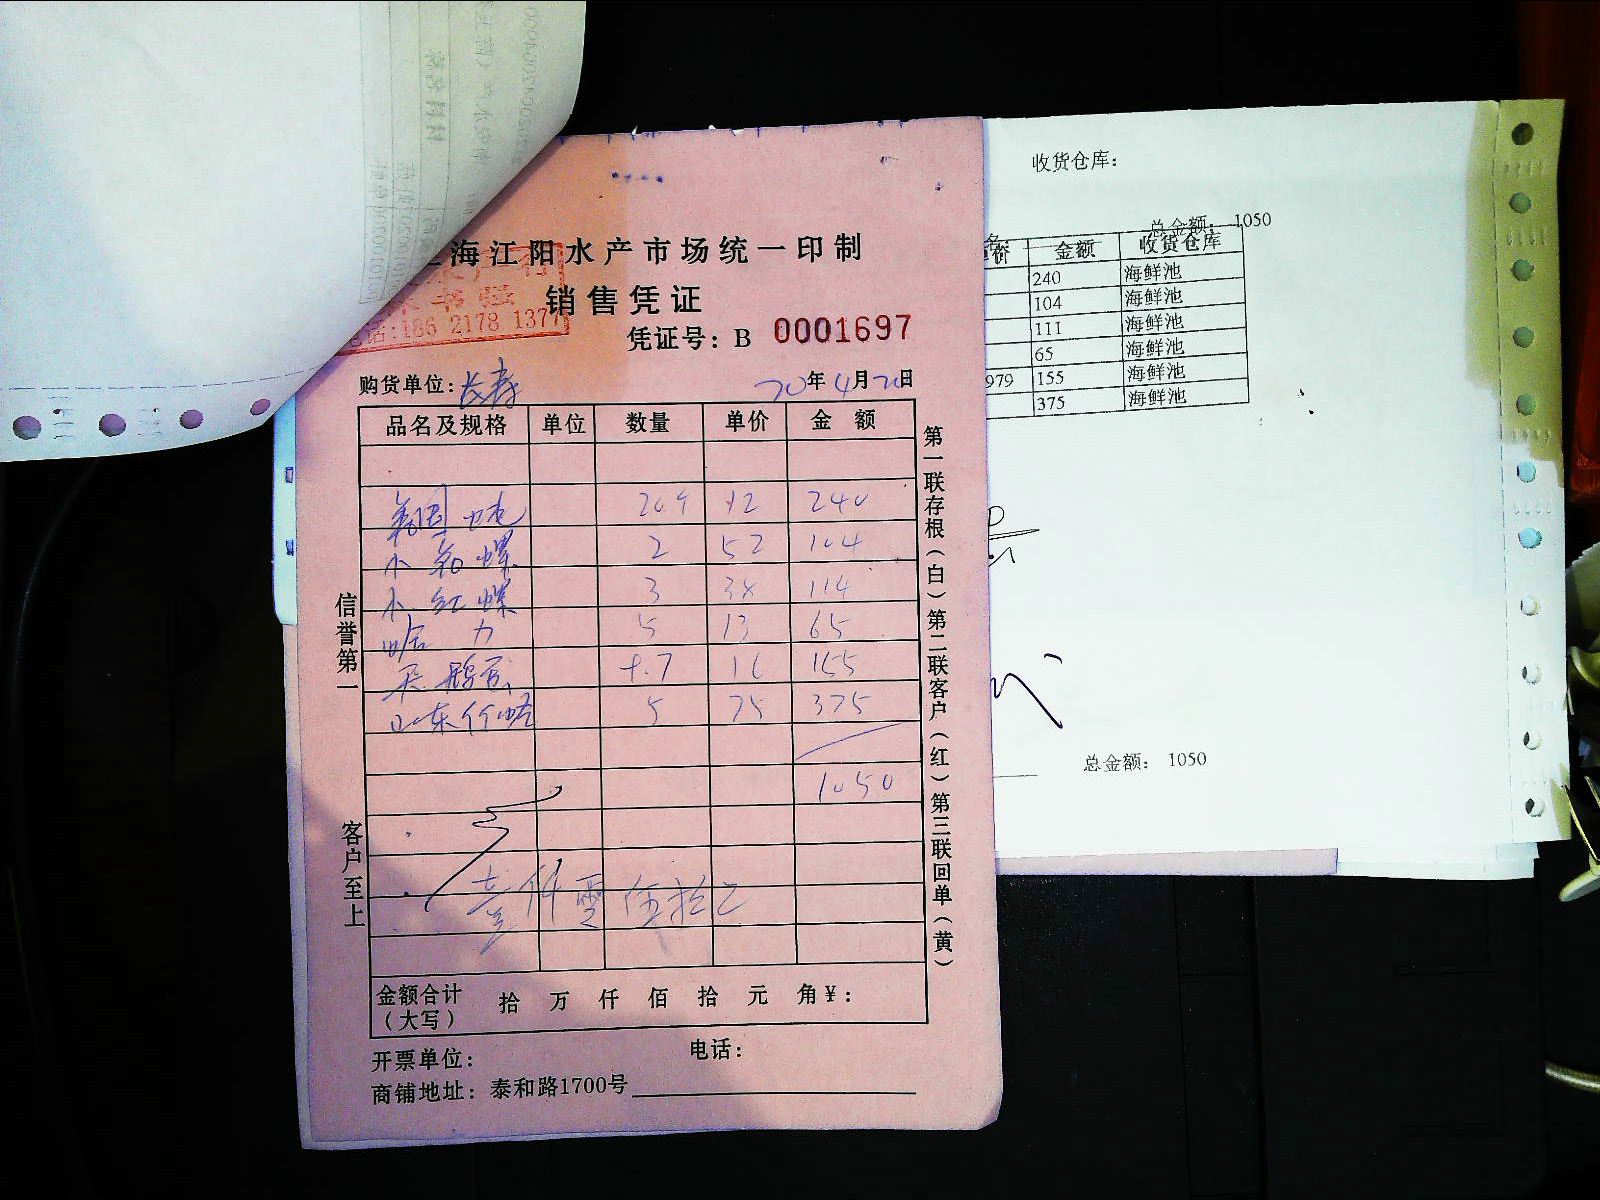 海江阳水产市场统一印制
销售凭证
电话:186 2178 1377
凭证号：B 0001697
购货单位：长寿 20年4月20日
品名及规格 单位 数量 单价 金 额
12 240
小 螺 2 52 104
小红螺 3 38 114
哈力 5 13 65
16 155
山东竹蛏 5 75 375
1050
壹仟零伍拾
金额合计（大写） 拾 万 仟 佰 拾 元 角￥：
开票单位： 电话：
商铺地址：泰和路1700号
信誉第一
客户至上
第一联存根（白）第二联客户（红）第三联回单（黄）
收货仓库：
总金额： 1050
价 金额 收货仓库
240 海鲜池
104 海鲜池
111 海鲜池
65 海鲜池
979 155 海鲜池
375 海鲜池
总金额： 1050